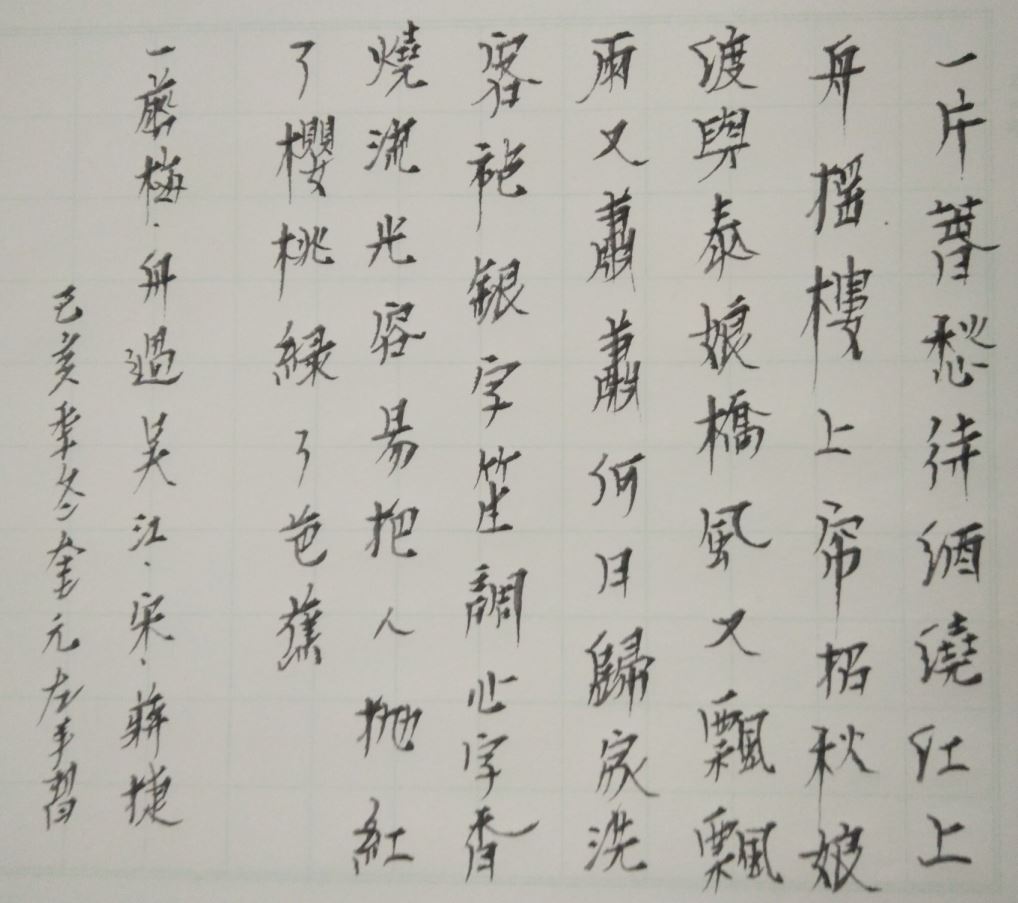 一片萅愁待酒澆江上
舟搖樓上帘招秋娘
渡與泰娘橋風又飄飄
雨又蕭蕭何日歸家洗
客袍銀字笙調心字香
燒流光容易把人拋紅
了櫻桃綠了芭蕉
一剪梅·舟過吴江·宋·蔣捷
己亥季冬奎元左手習